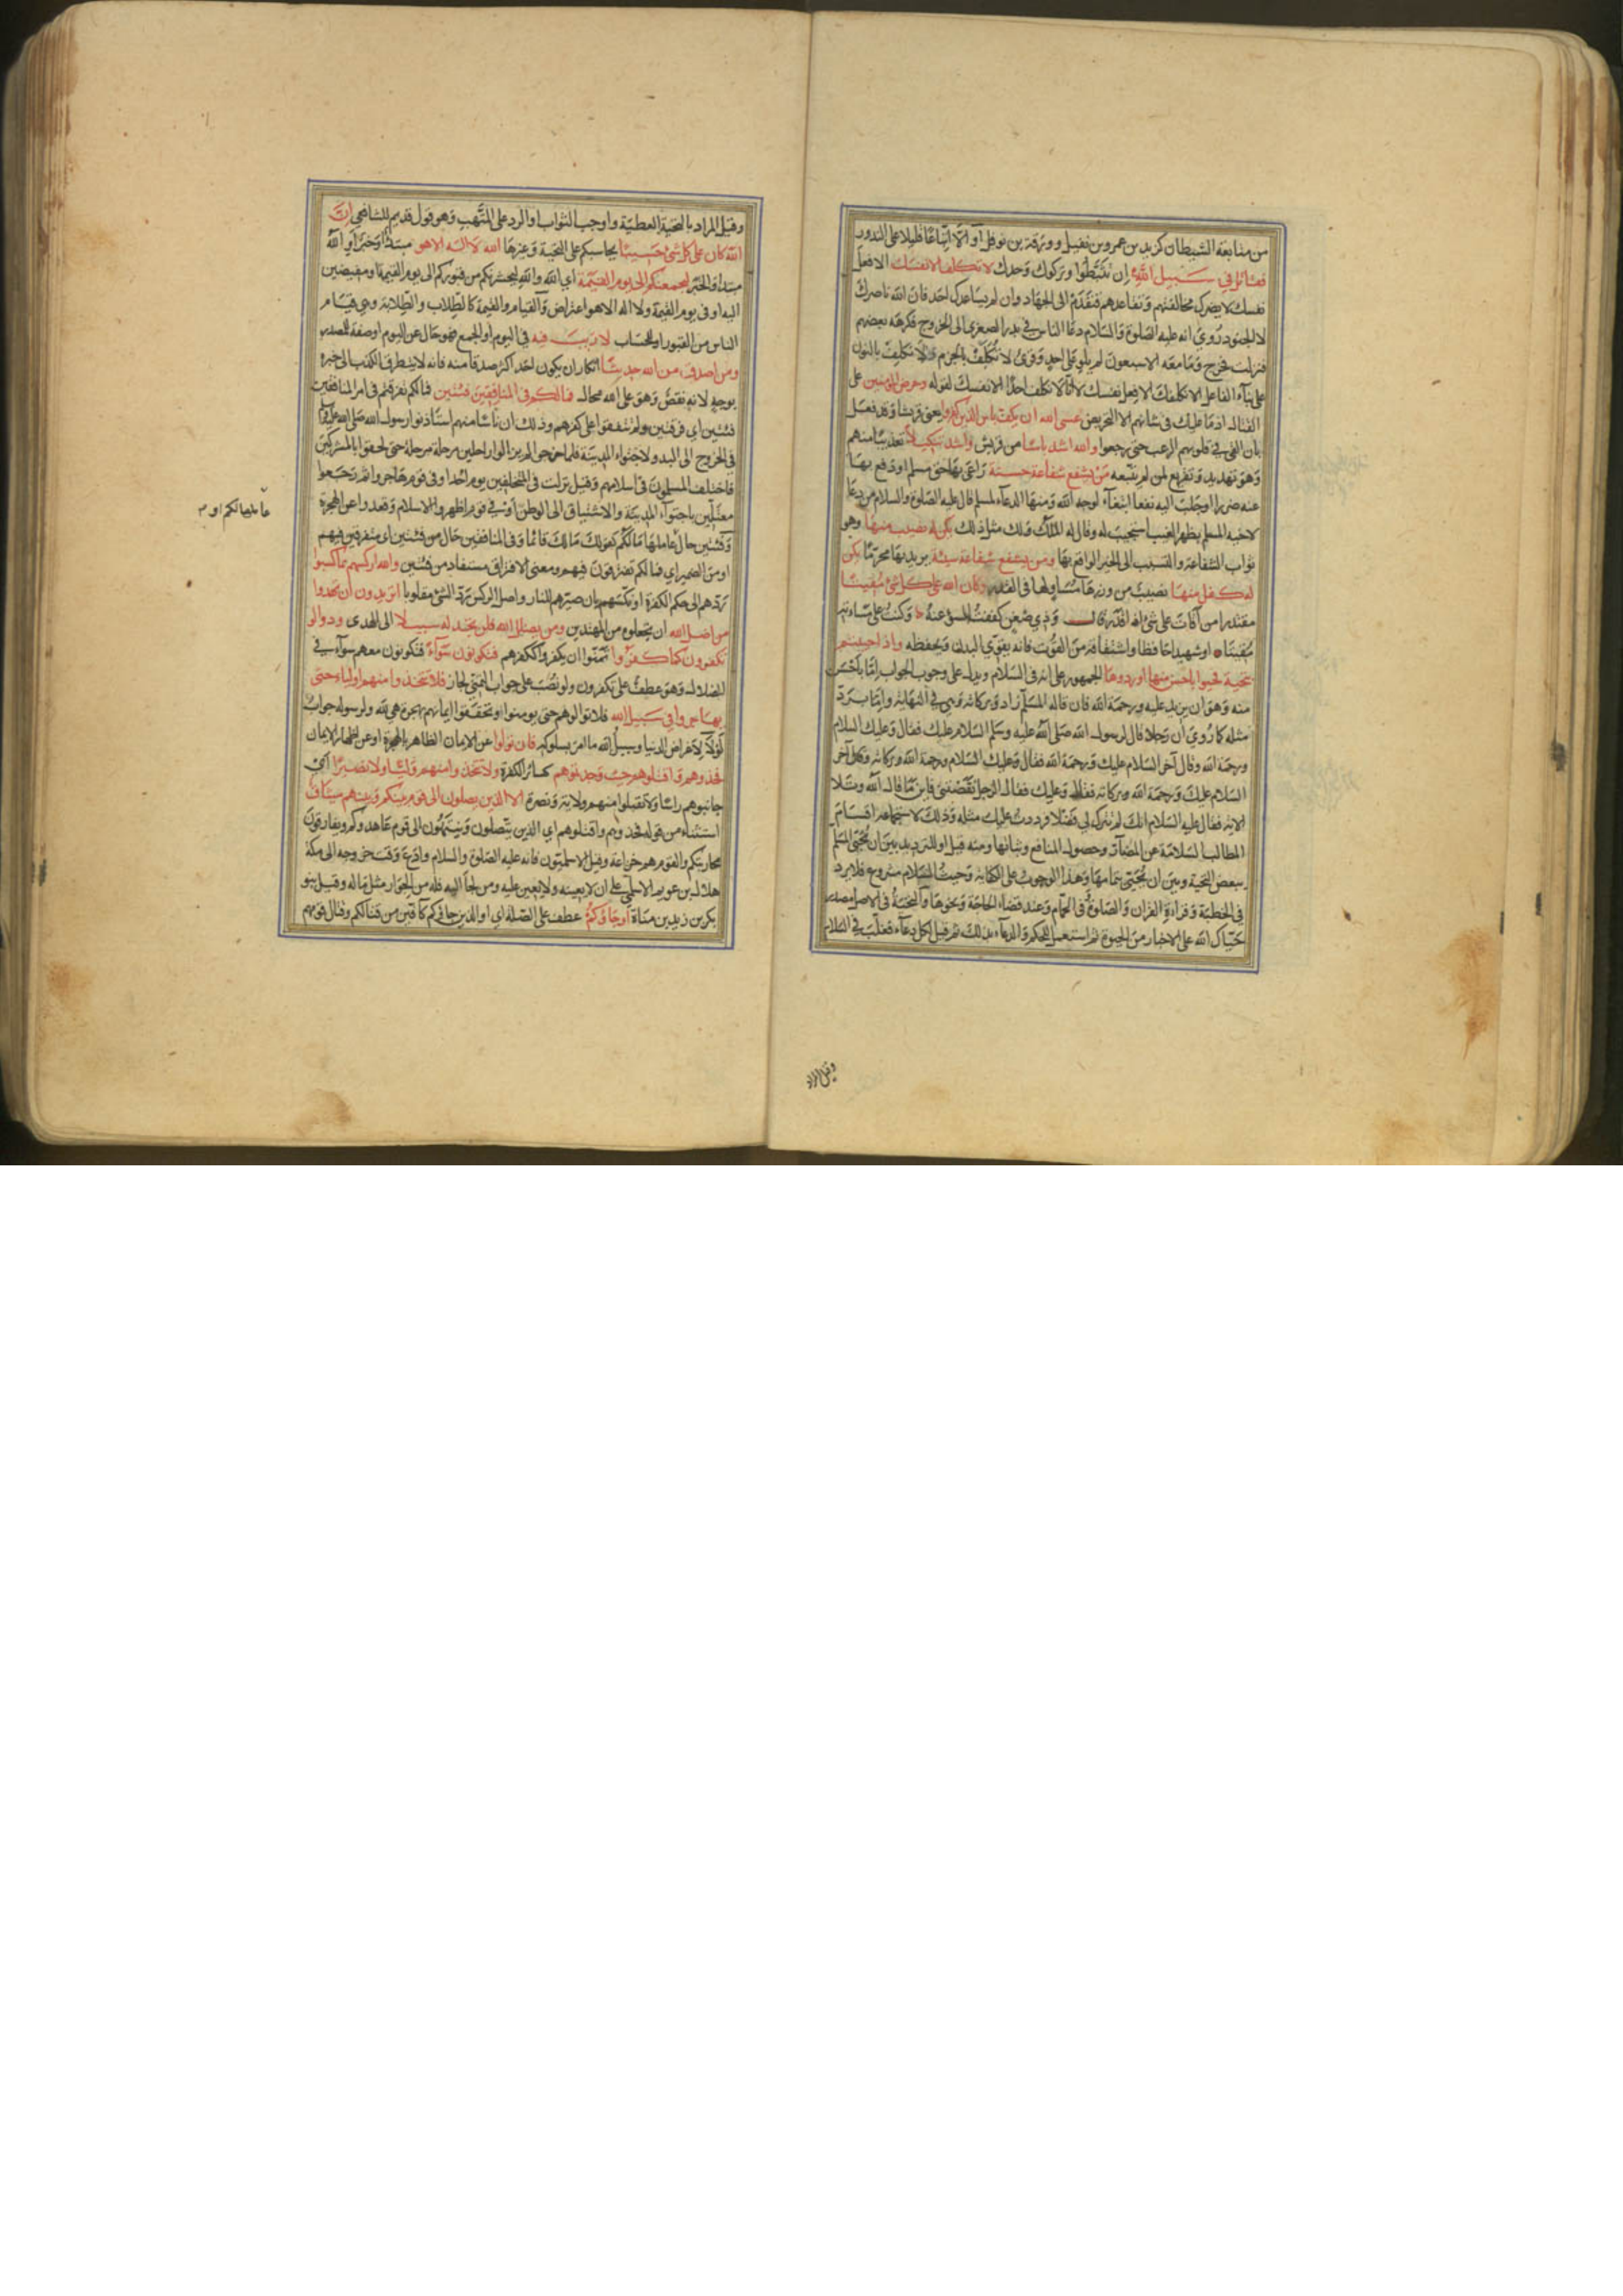 من متابعة الشيطان كزيد بن عمرو بن نفيل وورقة بن نوفل او الا اتباعا قليلا على الندور
فقاتل في سبيل الله ان تثبطوا وتركوك وحدك لا تكلف الا نفسك الا فعل
نفسك لا يضرك مخالفتهم وتقاعدهم فتقدم الى الجهاد وان لم يساعدك احد فان الله ناصرك
لا الجنود روي انه عليه الصلوة والسلام دعا الناس في بدر الصغرى الى الخروج فكرهه بعضهم
فنزلت فخرج وما معه الا سبعون لم يلو على احد وقرئ لا تكلف بالجزم ولا نكلف بالنون
على بناء الفاعل اي لا نكلفك الا فعل نفسك لا انا لا نكلف احدا الا نفسك لقوله وحرض المؤمنين على
القتال اذ ما عليك في شانهم الا التحريض عسى الله ان يكف باس الذين كفروا يعني قريشا وقد فعل
بان القى في قلوبهم الرعب حتى رجعوا والله اشد باسا من قريش واشد تنكيلا تعذيبا منهم
وهو تهديد وتقريع لمن لم يتبعه من يشفع شفاعة حسنة راعى بها حق مسلم او دفع بها
عنه ضررا او جلب اليه نفعا ابتغاء لوجه الله ومنها الدعاء لمسلم قال عليه الصلوة والسلام من دعا
لاخيه المسلم بظهر الغيب استجيب له وقال له الملك ولك مثل ذلك يكن له نصيب منها وهو
ثواب الشفاعة والتسبب الى الخير الواقع بها ومن يشفع شفاعة سيئة يريد بها محرما يكن
له كفل منها نصيب من وزرها مساو لها في القدر وكان الله على كل شئ مقيتا
مقتدرا من اقات على شئ اذا قدر قال وذي ضغن كففت السوء عنه وكنت على مساءته
مقيتا او شهيدا حافظا واشتقاقه من القوت فانه يقوي البدن ويحفظه واذا حييتم
بتحية فحيوا باحسن منها او ردوها الجمهور على انه في السلام ويدل على وجوب الجواب اما باحسن
منه وهو ان يزيد عليه ورحمة الله فان قاله المسلم زاد وبركاته وهي في النهاية واما برد
مثله كما روي ان رجلا قال لرسول الله صلى الله عليه وسلم السلام عليك فقال وعليك السلام
ورحمة الله وقال آخر السلام عليك ورحمة الله فقال وعليك السلام ورحمة الله وبركاته وقال آخر
السلام عليك ورحمة الله وبركاته فقال وعليك فقال الرجل نقصتني فاين ما قال الله وتلا
الاية فقال عليه السلام انك لم تترك لي فضلا فرددت عليك مثله وذلك لاستجماعه اقسام
المطالب السلامة عن المضار وحصول المنافع وثباتها ومنه قيل او للترديد بين ان يحيي المسلم
ببعض التحية وبين ان يحيي بتمامها وهذا الوجوب على الكفاية وحيث السلام مشروع فلا يرد
في الخطبة وقراءة القران والصلوة في الحمام وعند قضاء الحاجة ونحوها والتحية في الاصل مصدر
حياك الله على الاخبار من الحيوة ثم استعمل للحكم والدعاء بذلك ثم قيل لكل دعاء فغلب في السلام
وقيل المراد
وقيل المراد بالتحية العطية واوجب الثواب او الرد على المتهب وهو قول قديم للشافعي ان
الله كان على كل شئ حسيبا يحاسبكم على التحية وغيرها الله لا اله الا هو مبتدأ وخبر او الله
مبتدأ والخبر ليجمعنكم الى يوم القيمة اي الله والله ليحشرنكم من قبوركم الى يوم القيمة او مفيضين
اليه او في يوم القيمة ولا اله الا هو اعتراض والقيام والقيمة كالطلاب والطلابة وهي قيام
الناس من القبور او للحساب لا ريب فيه في اليوم او الجمع فهو حال عن اليوم او صفة للمصدر
ومن اصدق من الله حديثا انكار ان يكون احد اكثر صدقا منه فانه لا يتطرق الكذب الى خبره
بوجه لانه نقص وهو على الله محال فما لكم في المنافقين فئتين فما لكم تفرقتم في امر المنافقين
فئتين اي فرقتين ولم تتفقوا على كفرهم وذلك ان ناسا منهم استاذنوا رسول الله صلى الله عليه وسلم
في الخروج الى البدو لاجتواء المدينة فلما خرجوا لم يزالوا راحلين مرحلة مرحلة حتى لحقوا بالمشركين
فاختلف المسلمون في اسلامهم وقيل نزلت في المتخلفين يوم احد او في قوم هاجروا ثم رجعوا
معتلين باجتواء المدينة والاشتياق الى الوطن او في قوم اظهروا الاسلام وقعدوا عن الهجرة
وفئتين حال عاملها ما لكم كقولك ما لك قائما وفي المنافقين حال من فئتين اي متفرقين فيهم
او من الضمير اي فما لكم تفترقون فيهم ومعنى الافتراق مستفاد من فئتين والله اركسهم بما كسبوا
ردهم الى حكم الكفرة او نكسهم بان صيرهم للنار واصل الركس رد الشئ مقلوبا اتريدون ان تهدوا
من اضل الله ان تجعلوه من المهتدين ومن يضلل الله فلن تجد له سبيلا الى الهدى ودوا لو
تكفرون كما كفروا تمنوا ان تكفروا ككفرهم فتكونون سواء فتكونون معهم سواء في
الضلال وهو عطف على تكفرون ولو نصب على جواب التمني لجاز فلا تتخذوا منهم اولياء حتى
يهاجروا في سبيل الله فلا توالوهم حتى يومنوا وتتحققوا ايمانهم بهجرة هي لله ولرسوله
لا لاغراض الدنيا وسبيل الله ما امر بسلوكه فان تولوا عن الايمان الظاهر بالهجرة او عن اظهار الايمان
فخذوهم واقتلوهم حيث وجدتموهم كسائر الكفرة ولا تتخذوا منهم وليا ولا نصيرا اي
جانبوهم راسا ولا تقبلوا منهم ولاية ونصرة الا الذين يصلون الى قوم بينكم وبينهم ميثاق
استثناء من قوله فخذوهم واقتلوهم اي الذين يتصلون وينتهون الى قوم عاهدوكم ويفارقون
محاربتكم والقوم هم خزاعة وقيل الاسلميون فانه عليه الصلوة والسلام وادع وقت خروجه الى مكة
هلال بن عويمر الاسلمي على ان لا يعينه ولا يعين عليه ومن لجا اليه فله من الجوار مثل ما له وقيل بنو
بكر بن زيد بن مناة او جاؤكم عطف على الصلة اي او الذين جاؤكم كافين من قتالكم وقتال قومهم